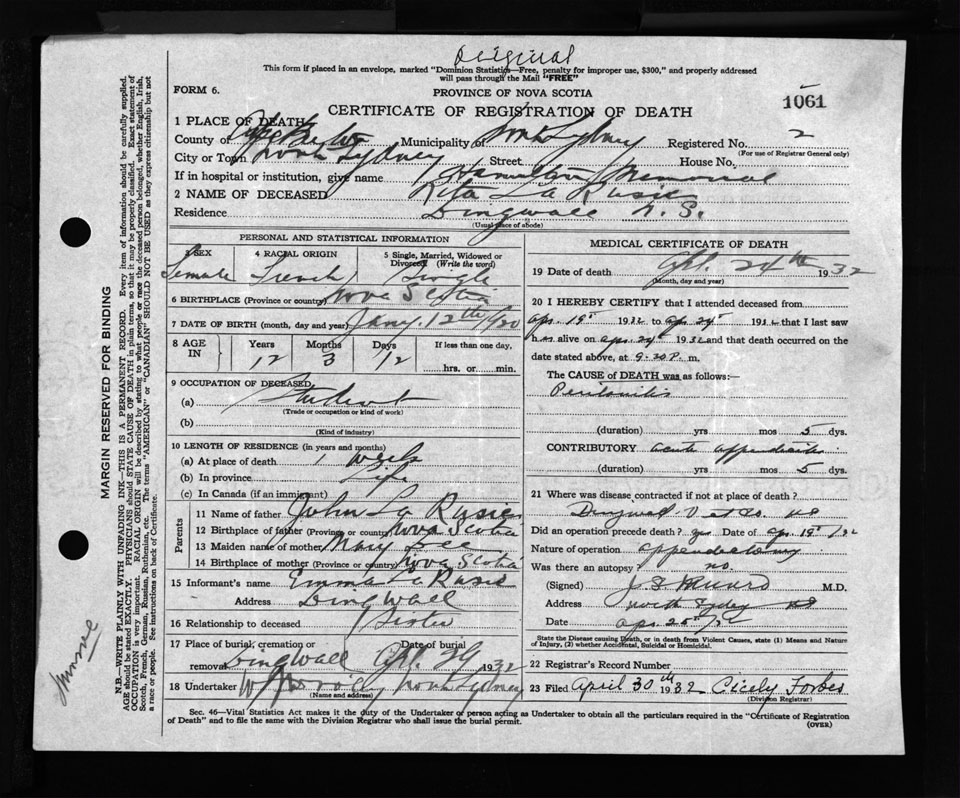 Original
This form if placed in an envelope, marked "Dominion Statistics—Free, penalty for improper use, $300," and properly addressed
will pass through the Mail "FREE"
FORM 6.
PROVINCE OF NOVA SCOTIA
1061
CERTIFICATE OF REGISTRATION OF DEATH
1 PLACE OF DEATH
County of Cape Breton Municipality of North Sydney Registered No. 2
(For use of Registrar General only)
City or Town North Sydney Street House No.
If in hospital or institution, give name Hamilton Memorial
2 NAME OF DECEASED Rita La Rusic
Residence Dingwall N. S.
(Usual place of abode)
PERSONAL AND STATISTICAL INFORMATION
3 SEX
Female
4 RACIAL ORIGIN
French
5 Single, Married, Widowed or
Divorced (Write the word)
Single
6 BIRTHPLACE (Province or country) Nova Scotia
7 DATE OF BIRTH (month, day and year) Jany. 12th 1920
8 AGE IN
Years Months Days If less than one day,
12 3 12
hrs. or min.
9 OCCUPATION OF DECEASED
(a) Student
(Trade or occupation or kind of work)
(b)
(Kind of industry)
10 LENGTH OF RESIDENCE (in years and months)
(a) At place of death 1 week
(b) In province Life
(c) In Canada (if an immigrant)
Parents
11 Name of father John La Rusic
12 Birthplace of father (Province or country) Nova Scotia
13 Maiden name of mother Mary
14 Birthplace of mother (Province or country) Nova Scotia
15 Informant's name Emma La Rusic
Address Dingwall
16 Relationship to deceased Sister
17 Place of burial, cremation or Date of burial
removal Dingwall Apl. 29 1932
18 Undertaker North Sydney
(Name and address)
MEDICAL CERTIFICATE OF DEATH
19 Date of death Apl. 24th 1932
(Month, day and year)
20 I HEREBY CERTIFY that I attended deceased from
Ap. 19th 1932 to Ap. 24th 1932 that I last saw
h er alive on Ap. 24th 1932 and that death occurred on the
date stated above, at 9.20 P. m.
The CAUSE of DEATH was as follows:—
Peritonitis
(duration) yrs mos 5 dys.
CONTRIBUTORY acute appendicitis
(duration) yrs mos 5 dys.
21 Where was disease contracted if not at place of death?
Dingwall Vict Co. NS
Did an operation precede death? yes Date of Ap. 19th/32
Nature of operation appendectomy
Was there an autopsy? no.
(Signed) Munro M.D.
Address North Sydney NS
Date Ap. 25th/32
State the Disease causing Death, or in death from Violent Causes, state (1) Means and Nature
of Injury, (2) whether Accidental, Suicidal or Homicidal.
22 Registrar's Record Number
23 Filed April 30th 1932 Cicely Forbes
(Division Registrar)
Sec. 46—Vital Statistics Act makes it the duty of the Undertaker or person acting as Undertaker to obtain all the particulars required in the "Certificate of Registration
of Death" and to file the same with the Division Registrar who shall issue the burial permit.
(OVER)
MARGIN RESERVED FOR BINDING
N.B.—WRITE PLAINLY WITH UNFADING INK—THIS IS A PERMANENT RECORD. Every item of information should be carefully supplied.
AGE should be stated EXACTLY. PHYSICIANS should STATE CAUSE OF DEATH in plain terms, so that it may be properly classified. Exact statement of
OCCUPATION is very important. RACIAL ORIGIN will be described by stating to what people or race the deceased person belonged, whether English, Irish,
Scotch, French, German, Russian, Ruthenian, etc. The terms "AMERICAN" or "CANADIAN" SHOULD NOT BE USED as they express citizenship but not
a race or people. See instructions on back of Certificate.